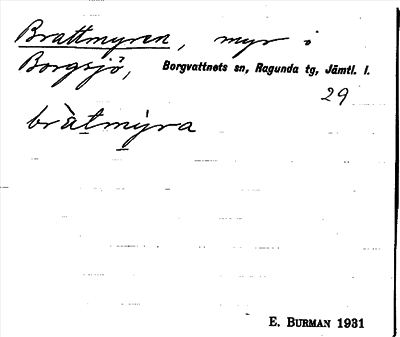 Brattmyren, myr i
Borgsjö, Borgvattnets sn, Ragunda tg, Jämtl. l.
29
bràtmýra
E. BURMAN 1931